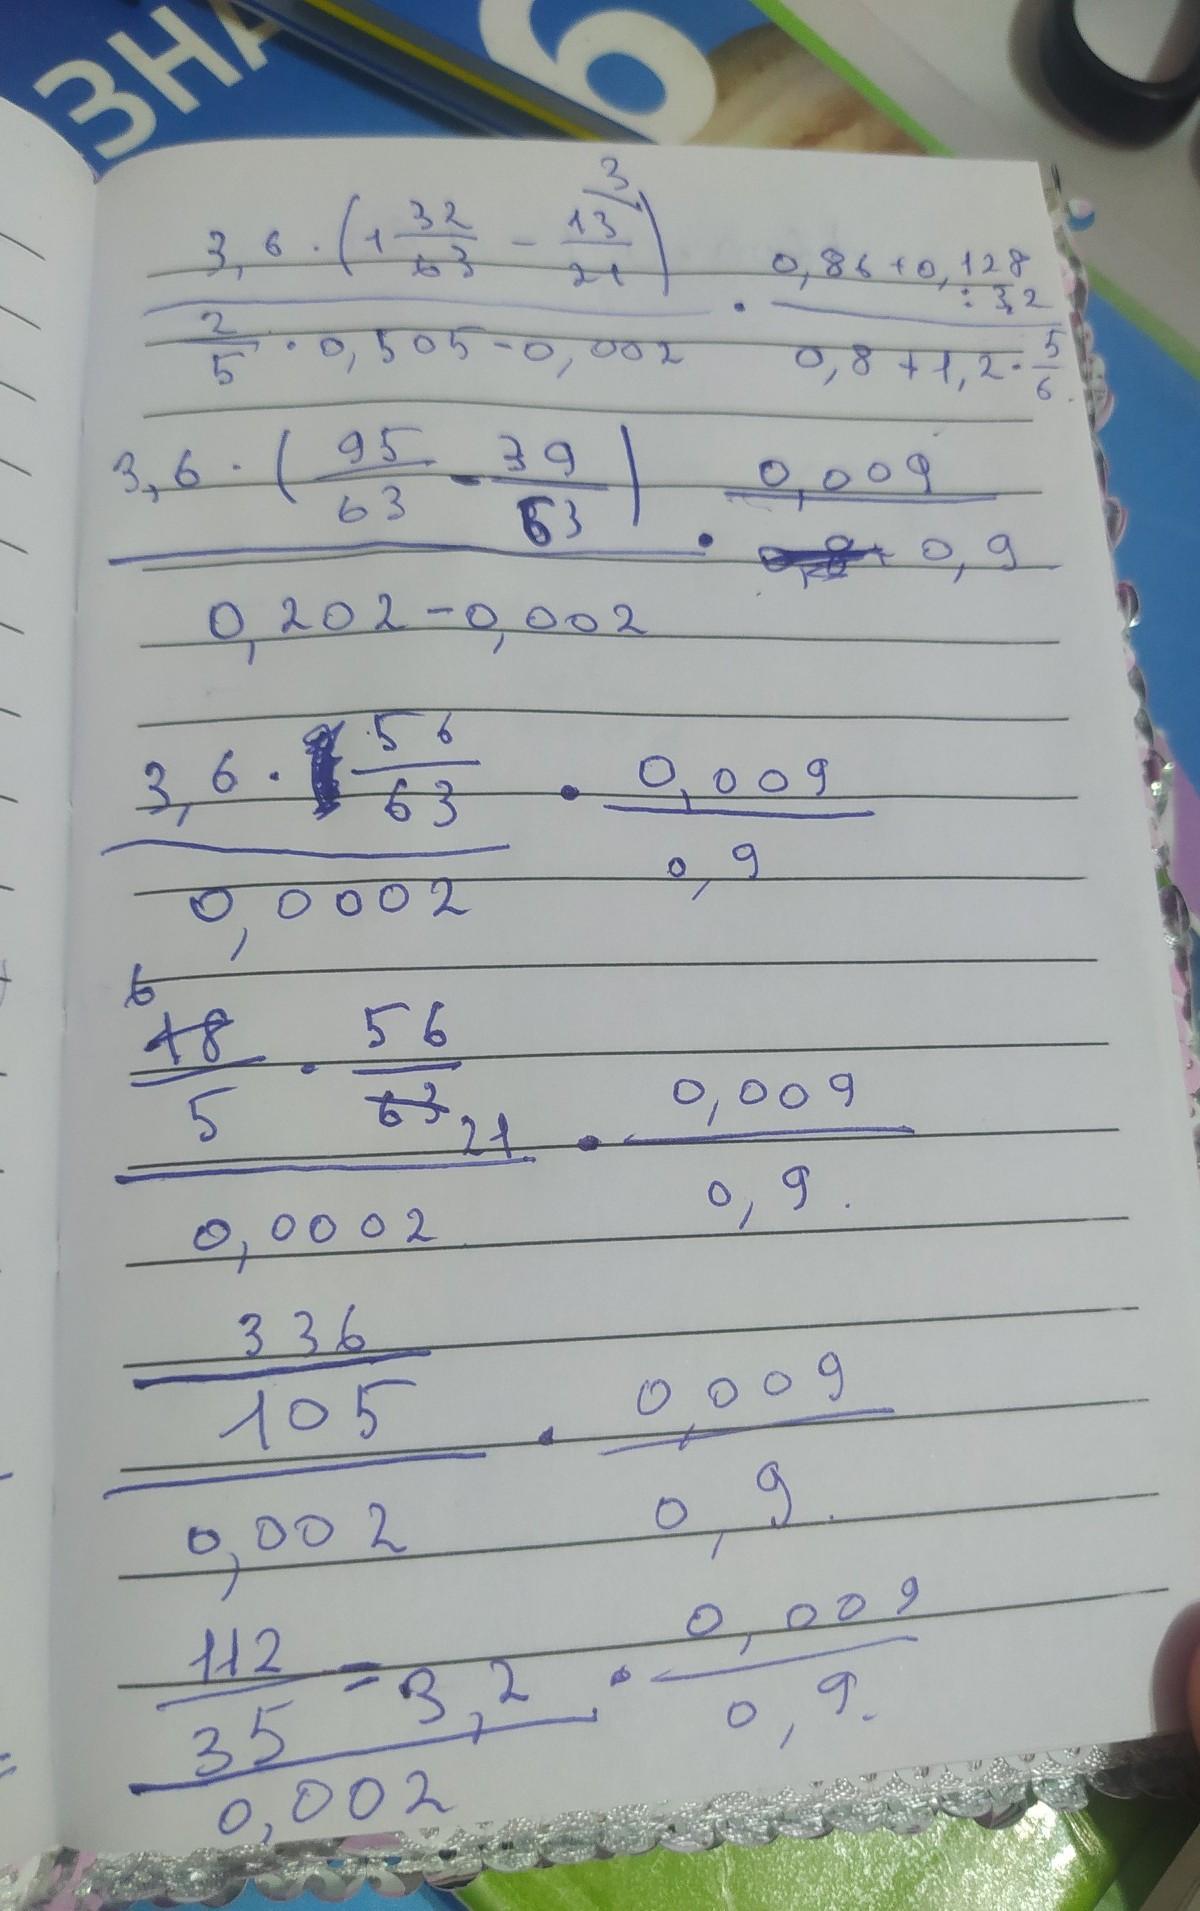 ЗНА 6
3
3,6 · (1 32/63 − 13/21) / (2/5 · 0,505 − 0,002) · (0,86 + 0,128 : 3,2) / (0,8 + 1,2 · 5/6)
3,6 · (95/63 − 39/63) / (0,202 − 0,002) · 0,009 / 0,9
3,6 · 56/63 / 0,0002 · 0,009 / 0,9
6
18/5 · 56/63 / 0,0002 · 0,009 / 0,9.
21
336/105 / 0,002 · 0,009 / 0,9.
112/35 = 3,2 / 0,002 · 0,009 / 0,9.